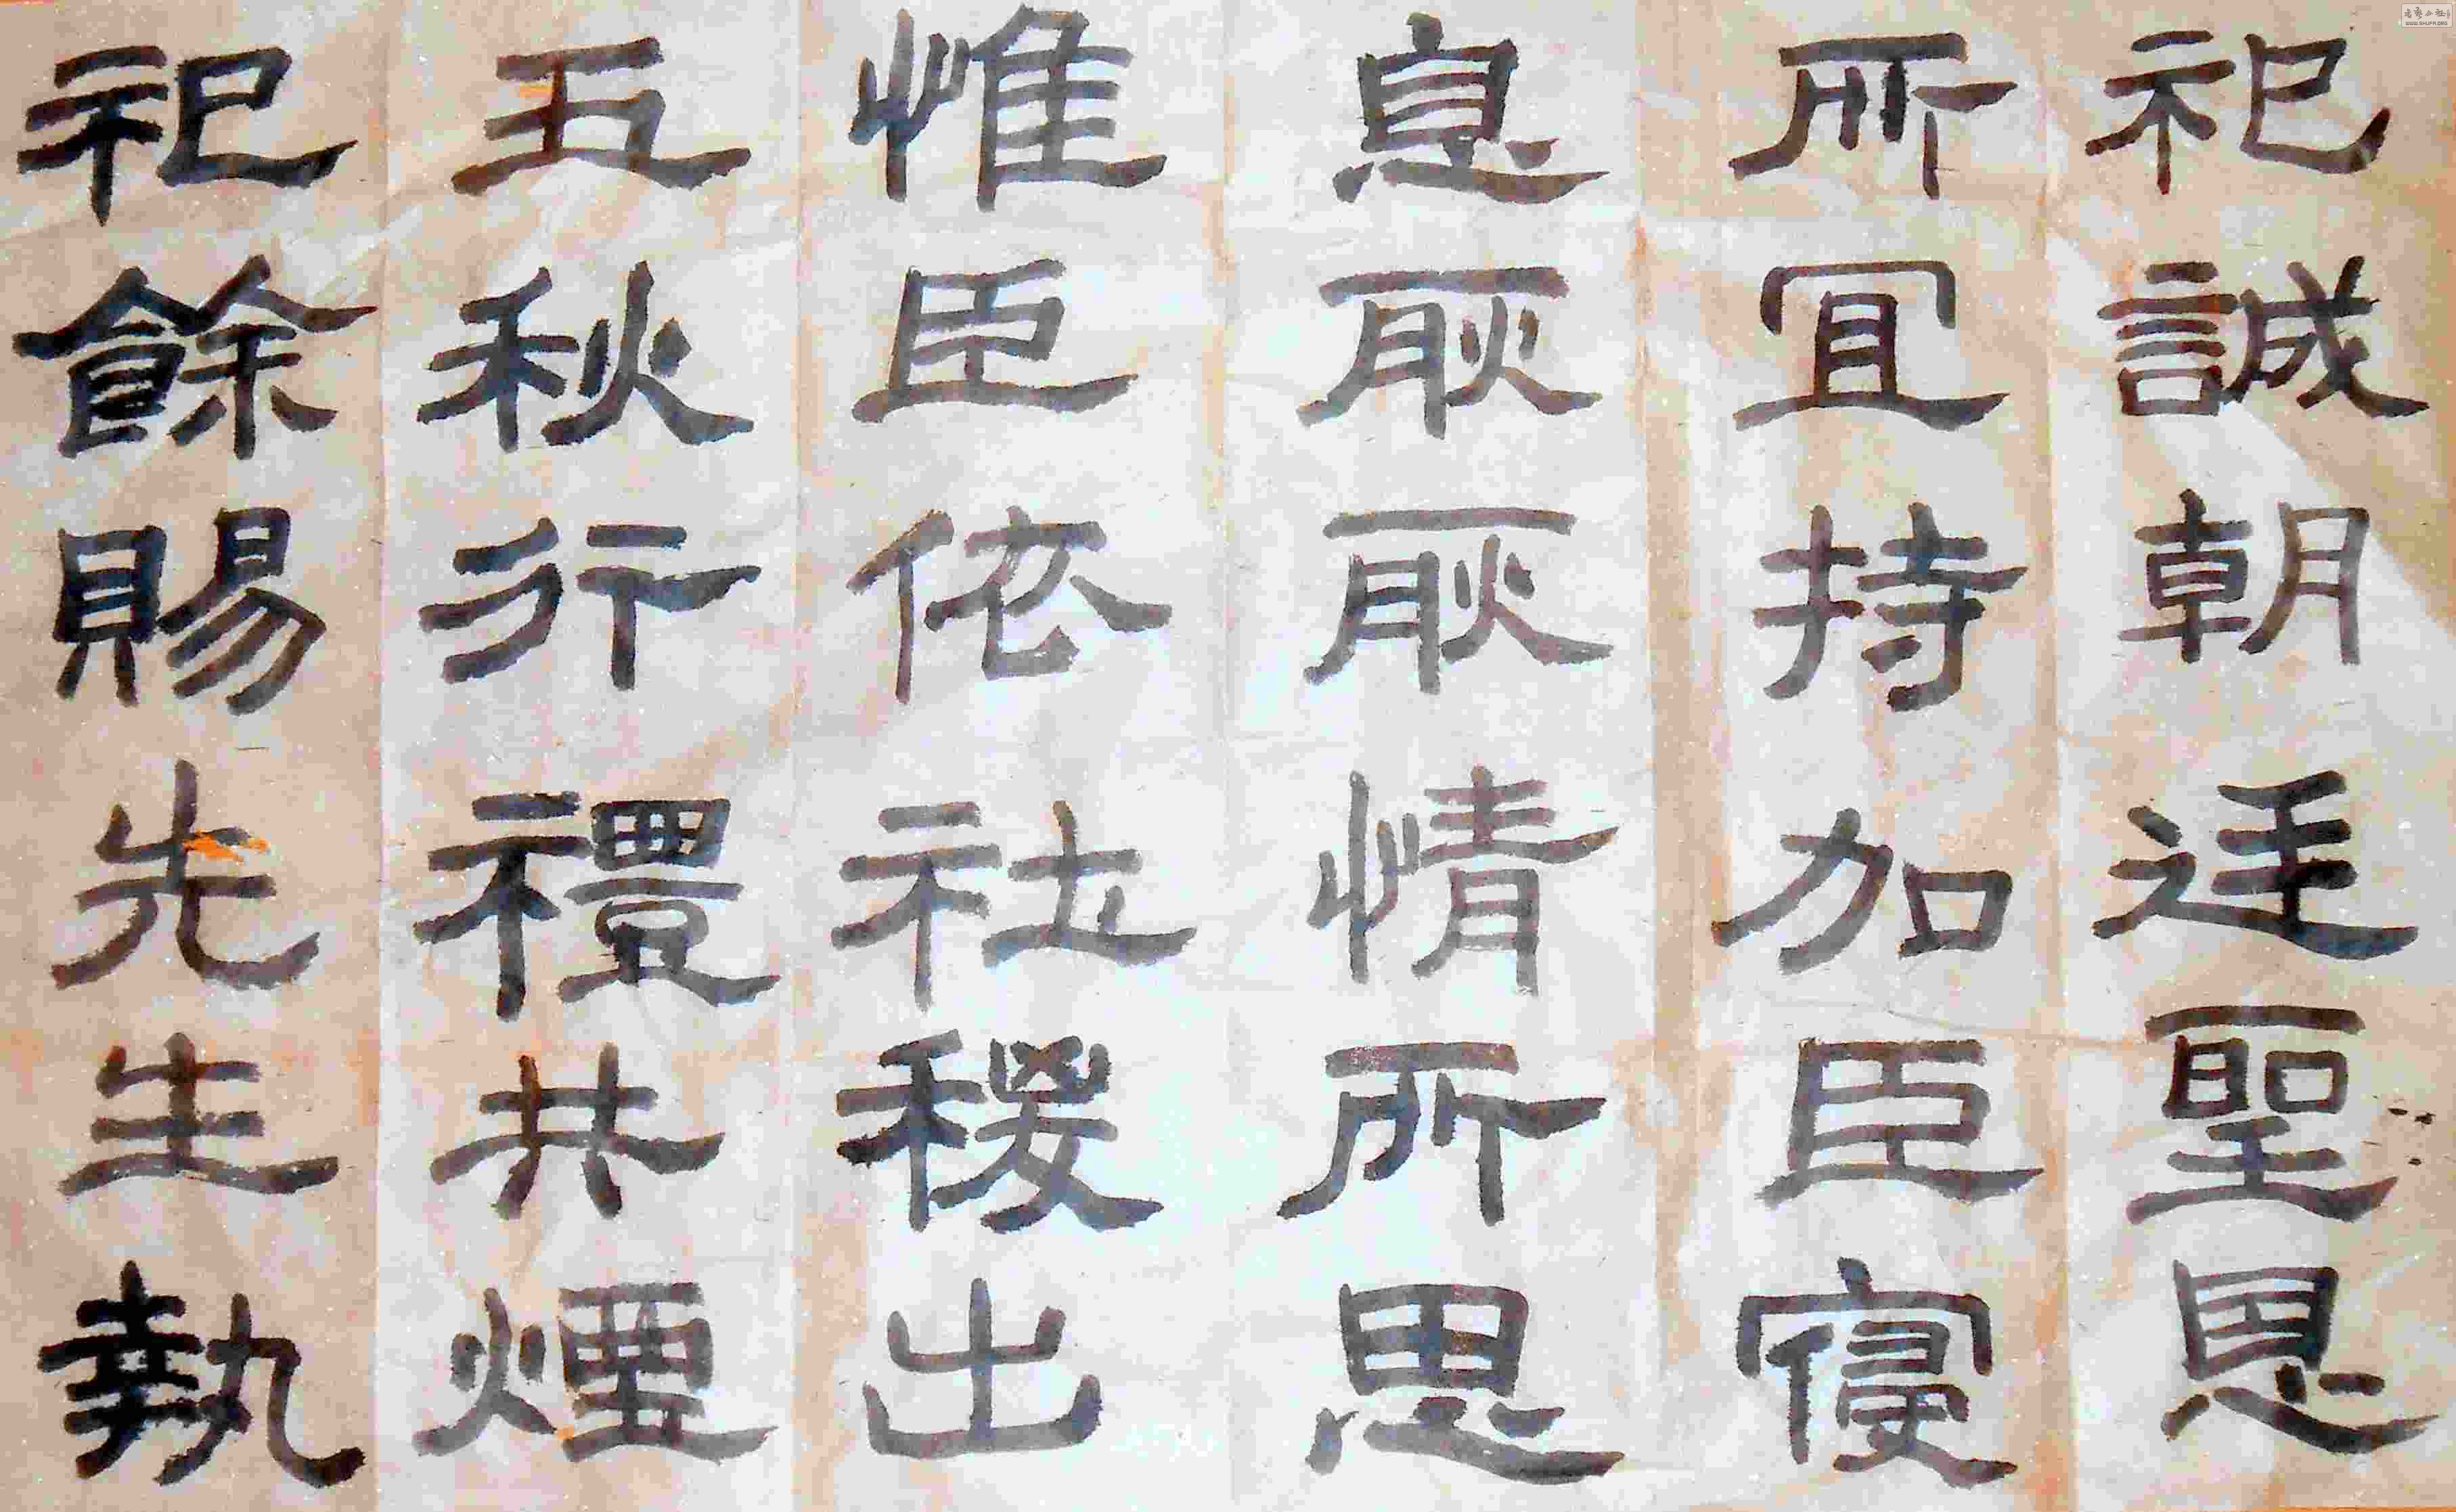 祀誠朝廷聖恩
所宜持加臣寑
息耿耿情所思
惟臣依社稷出
五秋行禮共煙
祀餘賜先生執